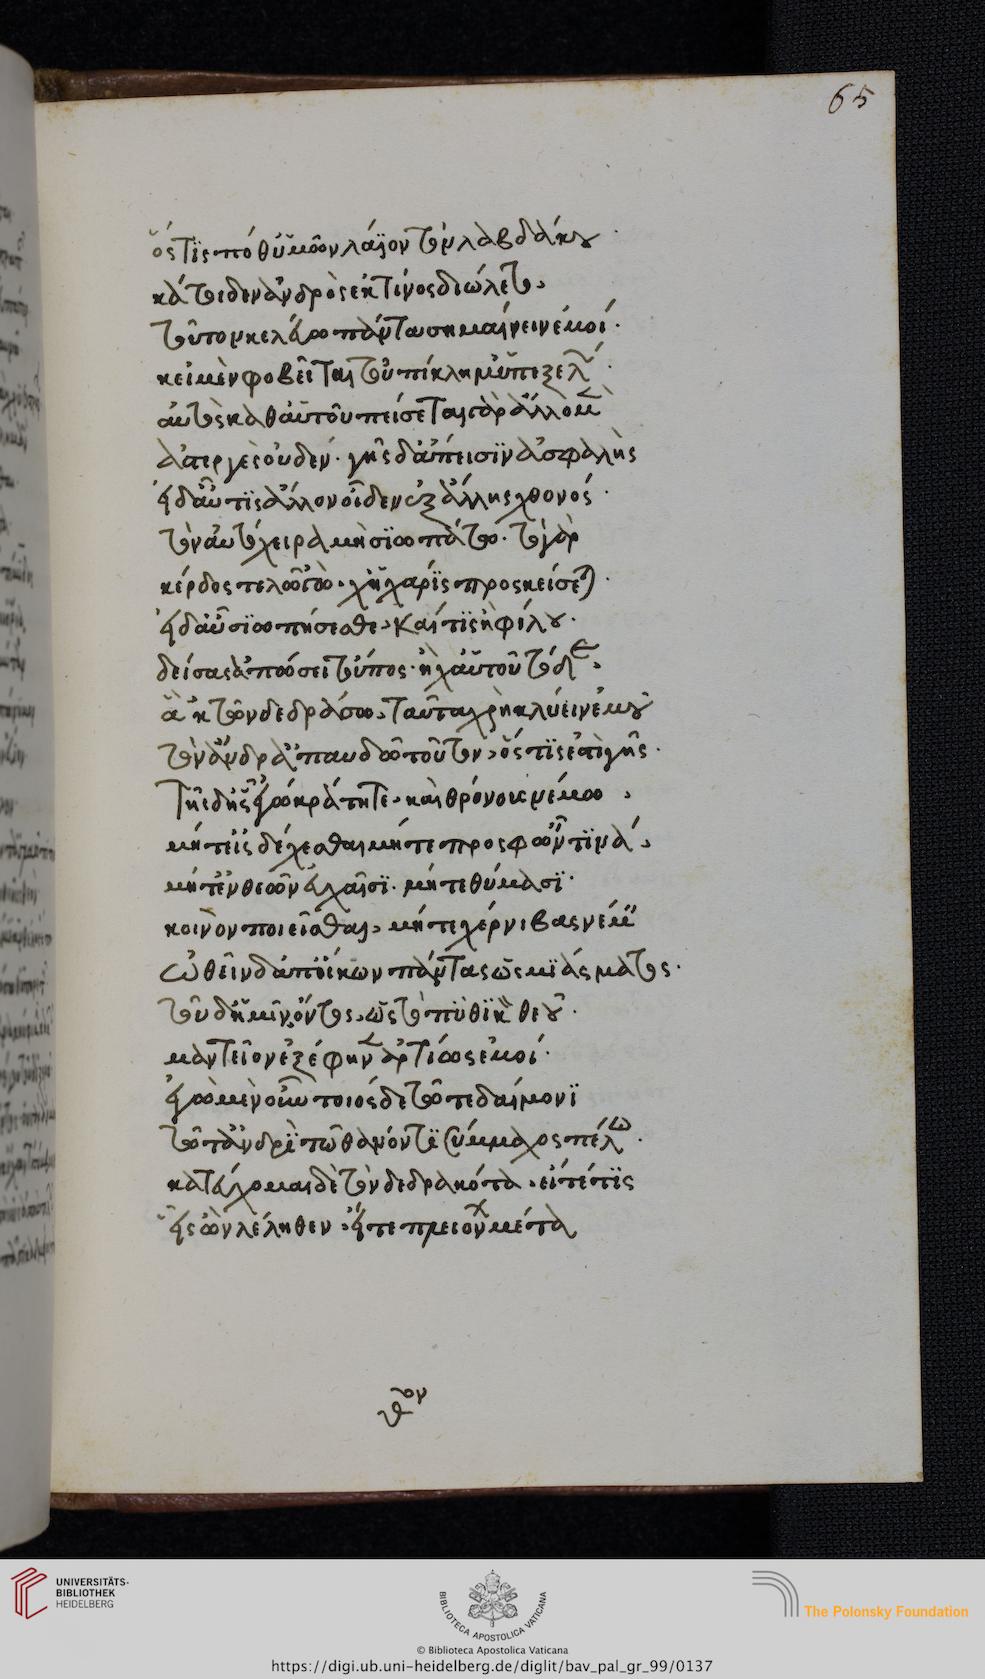 65
ὅστις ποθ' ὑμῶν λάϊον τὸν λαβδάκου
κάτοιδεν ἀνδρὸς ἐκ τίνος διώλετο,
τοῦτον κελεύω πάντα σημαίνειν ἐμοί·
κεἰ μὲν φοβεῖται τοὐπίκλημ' ὑπεξελὼν
αὐτὸς καθ' αὑτοῦ πείσεται γὰρ ἄλλο μὲν
ἀστεργὲς οὐδέν· γῆς δ' ἄπεισιν ἀσφαλὴς
εἰ δ' αὖ τις ἄλλον οἶδεν ἐξ ἄλλης χθονὸς·
τὸν αὐτόχειρα μὴ σιωπάτω· τὸ γὰρ
κέρδος τελῶ 'γώ· χἡ χάρις προσκείσεται·
εἰ δ' αὖ σιωπήσεσθε, καί τις ἢ φίλου·
δείσας ἀπώσει τοὔπος· ἢ χαὑτοῦ τόδε,
ἃ 'κ τῶνδε δράσω, ταῦτα χρὴ κλύειν ἐμοῦ
τὸν ἄνδρ' ἀπαυδῶ τοῦτον, ὅστις ἐστὶ γῆς·
τῆσδ' ἧς ἐγὼ κράτη τε, καὶ θρόνους νέμω,
μήτ' εἰσδέχεσθαι μήτε προσφωνεῖν τινά,
μήτ' ἐν θεῶν εὐχαῖσι· μήτε θύμασι·
κοινὸν ποιεῖσθαι, μήτε χέρνιβας νέμειν
ὠθεῖν δ' ἀπ' οἴκων πάντας ὡς μιάσματος·
τοῦδ' ἡμῖν ὄντος, ὡς τὸ πυθικὸν θεοῦ·
μαντεῖον ἐξέφηνεν ἀρτίως ἐμοί·
ἐγὼ μὲν οὖν τοιόσδε τῷ τε δαίμονι
τῷ τ' ἀνδρὶ τῷ θανόντι σύμμαχος πέλω·
κατεύχομαι δὲ τὸν δεδρακότα, εἴτε τις
εἷς ὢν λέληθεν, εἴτε πλειόνων μέτα
UNIVERSITÄTS-
BIBLIOTHEK
HEIDELBERG
BIBLIOTECA APOSTOLICA VATICANA
The Polonsky Foundation
© Biblioteca Apostolica Vaticana
https://digi.ub.uni-heidelberg.de/diglit/bav_pal_gr_99/0137